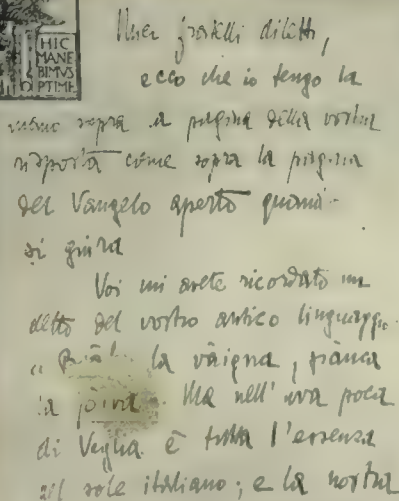 HIC
MANE
BIMVS
PTIME
Miei fratelli diletti,
ecco che io tengo la
mano sopra la pagina della vostra
risposta come sopra la pagina
del Vangelo aperto quando
si giura
Voi mi avete ricordato un
detto del vostro antico linguaggio.
la vàigna, piànca
la jòiva. Ma nell'uva poca
di Veglia è tutta l'essenza
del sole italiano; e la nostra